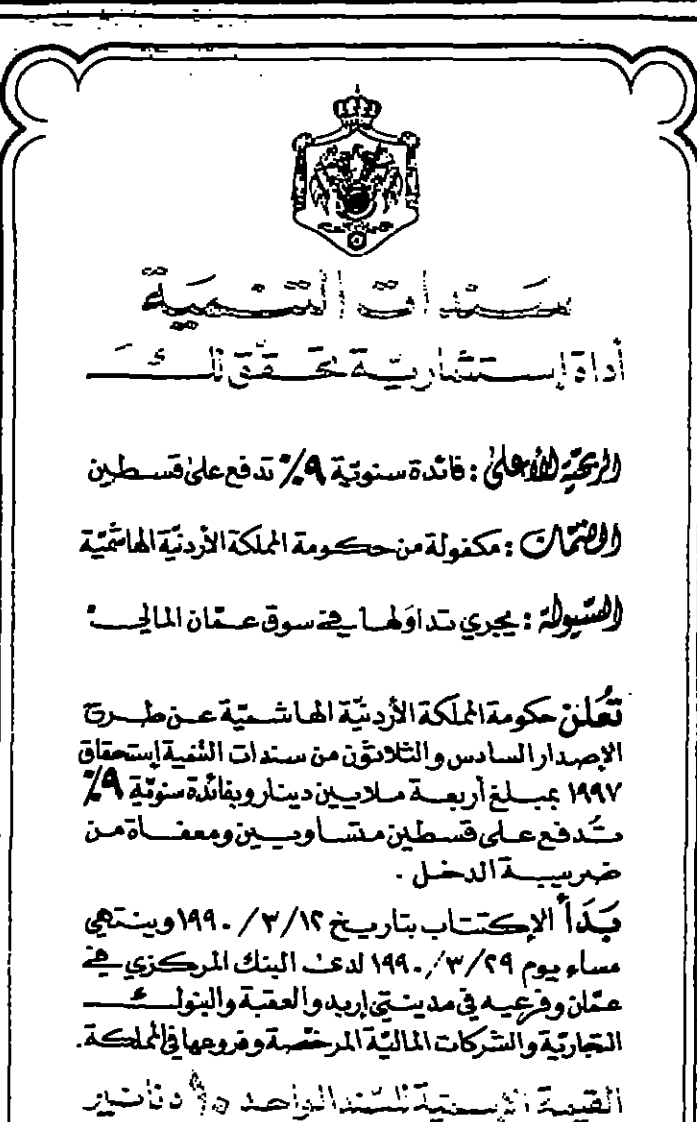 سندات التنمية
أداة إستثمارية تحقق لك
الربحية الأعلى : فائدة سنوية ٩٪ تدفع على قسطين
الضمان : مكفولة من حكومة المملكة الأردنية الهاشمية
السيولة : يجري تداولها في سوق عمان المالي
تعلن حكومة المملكة الأردنية الهاشمية عن طرح
الإصدار السادس والثلاثون من سندات التنمية إستحقاق
١٩٩٧ بمبلغ أربعة ملايين دينار وبفائدة سنوية ٩٪
تدفع على قسطين متساويين ومعفاة من
ضريبة الدخل .
بدأ الإكتتاب بتاريخ ١٢/٣/١٩٩٠ وينتهي
مساء يوم ٢٩/٣/١٩٩٠ لدى البنك المركزي في
عمان وفرعيه في مدينتي إربد والعقبة والبنوك
التجارية والشركات المالية المرخصة وفروعها في المملكة .
القيمة الإسمية للسند الواحد دنانير